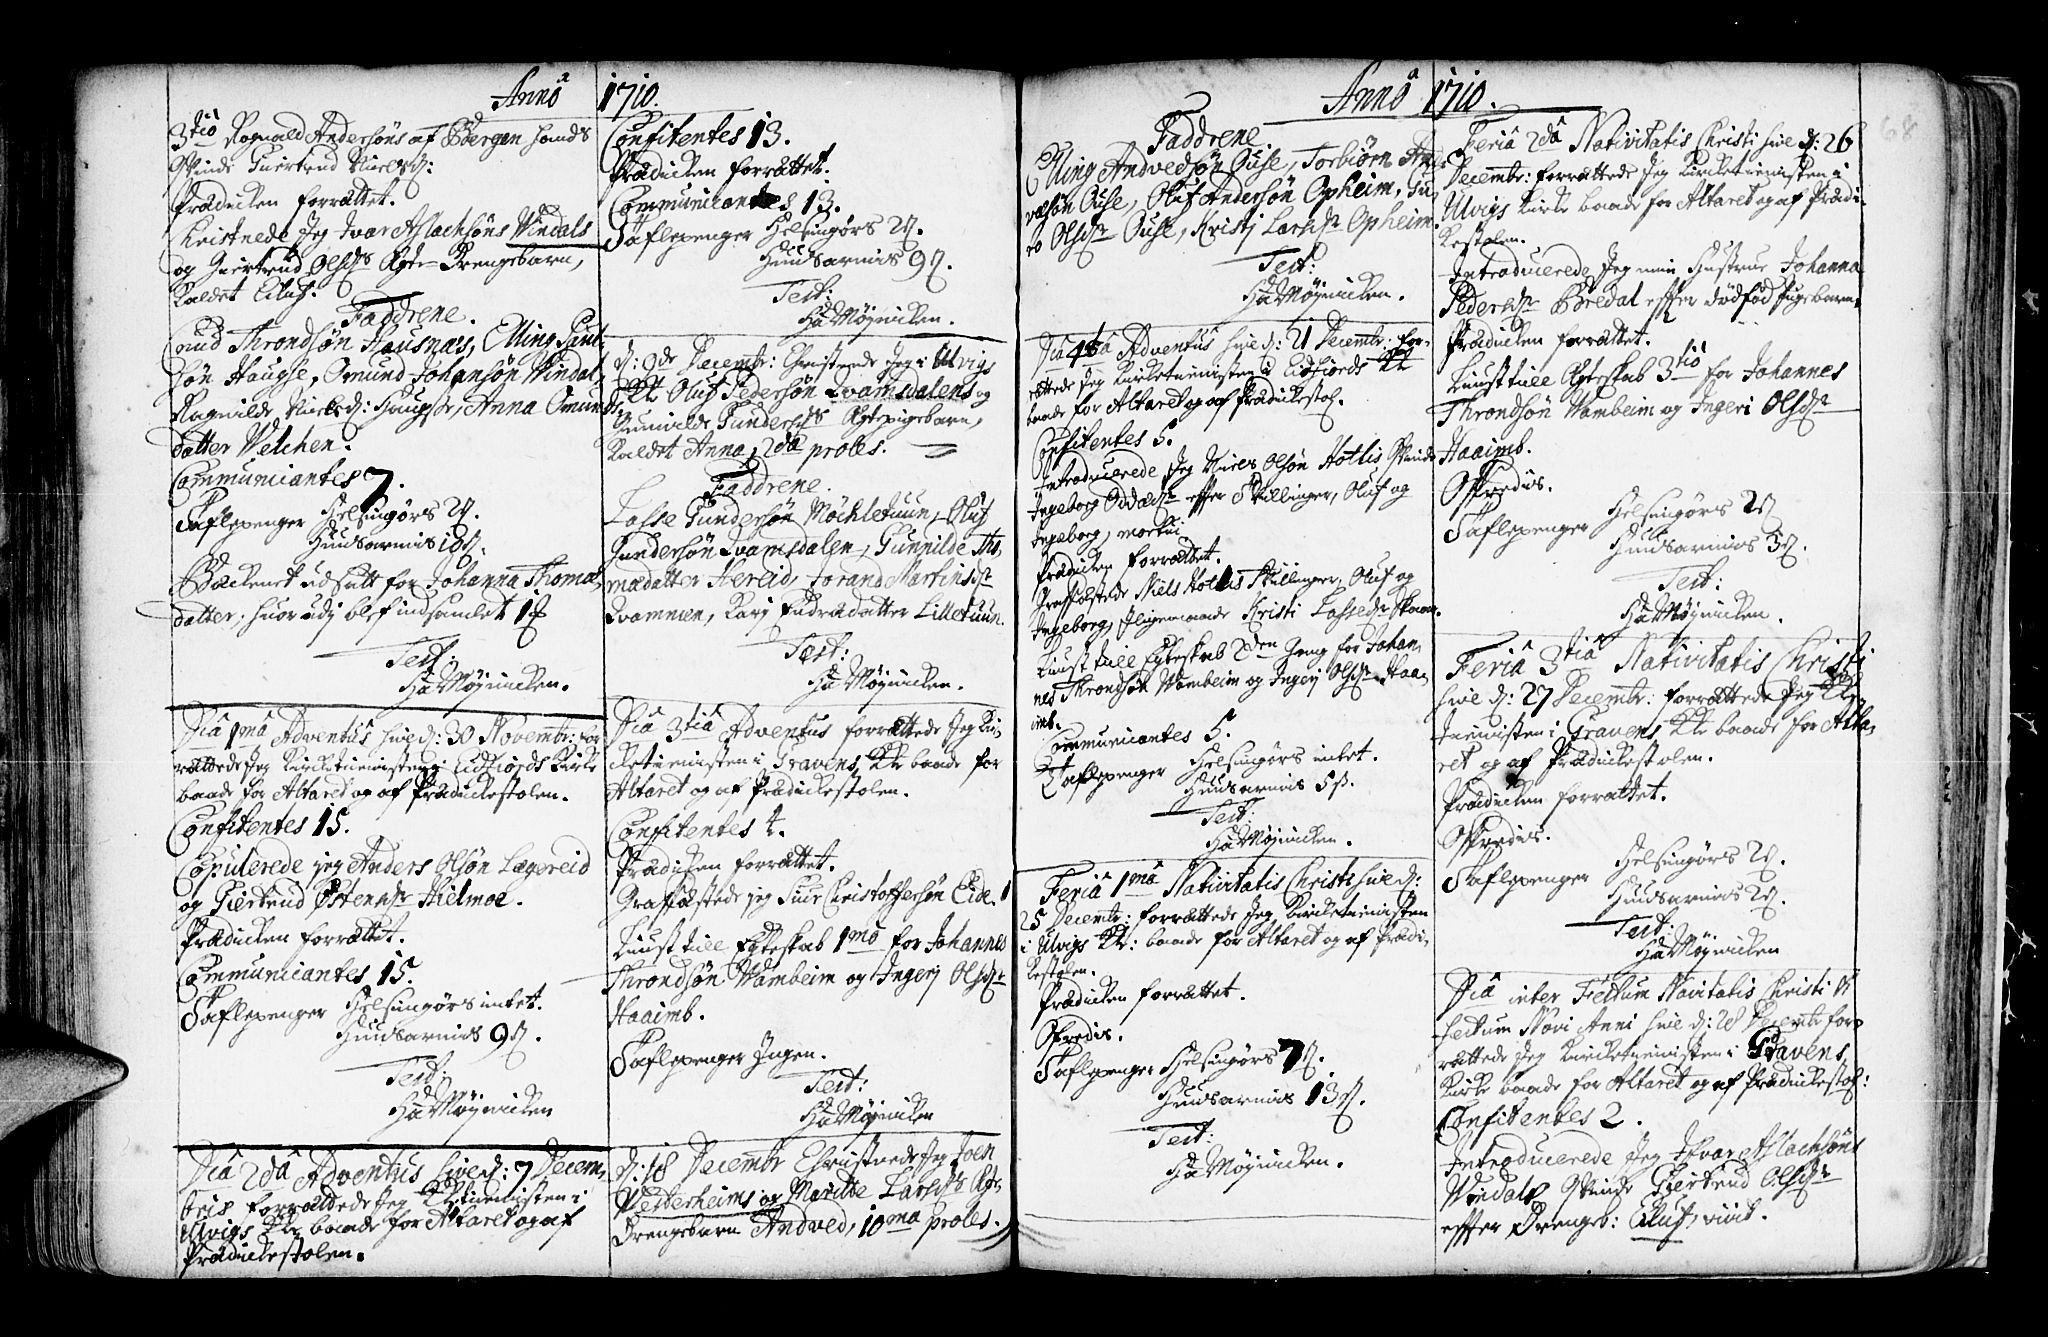 Anno 1710.
3tio Rognald Andersøns af Bergen hands
Qvinde Giertrud Nielsd:
Prædicken forrættet.
Christnede Jeg Ivar Aslachsøns Windals
og Giertrud Olsdr Ægte Drengebarn,
Kaldet Eiluf.
Faddrene.
Omund Johansøn Windal,
Ragnilde Nielsd: Haugse, Anna Omunds
datter Velchen.
Communicantes 7.
Taflepenger Helsingørs 2
Huusarmis 10
Johanna Thomæ
datter, hvor udj blef indsamlet 1
Test:
HaMøjnicken.
Dia 1ma Adventus hved: 30 Novembr: for
rættede Jeg Kircketienisten i Eidfiords Kirke
baade for Altaret og af Prædickestolen.
Confitentes 15.
Copulerede jeg Anders Olsøn Lægereid
og Giertrud Østensdr Hielmoe.
Prædicken forrættet.
Communicantes 15.
Taflepenger Helsingørs intet.
Huusarmis 9
Test:
HaMøjnicken
Dia 2da Adventus hved: 7 Decem,
bris forrættede Jeg Kktienisten i
Ulvigs Kke baade for Altaret og af
Prædickestolen.
Confitentes 13.
Prædicken forrættet.
Communicantes 13.
Taflepenger Helsingørs 2
Huusarmis 9
Test:
HaMøjnicken.
Decembr: Christnede Jeg i Ulvigs
Kke Oluf Pedersøn Qvamsdalens og
Gunvilde Gundersdr Ægtepigebarn,
Kaldet Anna, 2da proles.
Faddrene.
Lasse Gundersøn Møchletuun, Oluf
Gundersøn Qvamsdalen, Gunnilde Tho,
mædatter Hereid, Jorand Martinsdr
Qvamnen, Karj Endredatter Lilletuun.
Test:
HaMøjnicken.
Dia 3tia Adventus forrættede Jeg Kir
cketienisten i Gravens Kke baade for
Altaret og af Prædickestolen.
Confitentes 4.
Prædicken forrættet.
Graffæstede jeg Siur Christoffersøn Eide.
Liust till Egteskab 1mo for Johannes
Throndsøn Wambeim og Ingerj Olsdr
Haaimb.
Taflepenger Ingen.
Test:
HaMøjnicken
d: 18 Decembr Christnede Jeg Joen
Vesterheims og Maritte Larsdr Ægte
Drengebarn Andved, 10ma proles.
Anno 1710.
Faddrene
Elling Andvedsøn Ouse, Torbiørn
Ouse, Oluf Andersøn Opheim, Gu,
ro Olsdr Ouse, Kristj Larsdr Opheim.
Test:
HaMøjnicken.
Dia 4ta Adventus hved: 21 Decembr: for-
rættede Jeg Kircketienisten i Eidfiords Kke
baade for Altaret og af Prædickestol.
Confitentes 5.
Introducerede Jeg Niels Olsøn Hotlis Qvinde
Ingeborg efter Tvillinger, Oluf og
Ingeborg, mortui
Prædicken forrættet.
Graffæstede Niels Hotlis Tvillinger, Oluf og
Ingeborg, Iligemaade Kristi Lassedr
Liust till Egteskab 2den gang for Johan,
nes Throndsøn Wambeim og Ingerj Olsdr Haa,
imb.
Communicantes 5.
Taflepenger Helsingørs intet.
Huusarmis 5ß.
Test:
HaMøjnicken.
Feria 1ma Nativitatis Christi hved:
25 Decembr: forrættede Jeg Kircketienisten
i Ulvigs Kk: baade for Altaret og af Prædi,
kestolen.
Prædicken forrættet.
Offredis.
Taflepenger Helsingørs 7
Huusarmis 13
Test:
HaMøjnicken.
68
Feria 2da Nativitatis Christi hved: 26
Decembr: forrættede Jeg Kircketienisten i
Ulvigs Kirke baade for Altaret og af Prædi,
kestolen.
Introducerede Jeg min Hustrue Johanna
Pedersdr Bredal effter dødfød Pigebarn.
Prædicken forrættet.
Liust till Ægteskab 3tio for Johannes
Throndsøn Wambeim og Ingeri Olsdr
Haaimb.
Offredis.
Taflepenger Helsingørs 2
Huusarmis 3
Test:
HaMøjnicken.
Feria 3tia Nativitatis Christi
hved: 27 Decembr: forrættede Jeg Kke
tienisten i Gravens Kke baade for Alta,
ret og af Prædickestolen.
Prædicken forrættet.
Offredis.
Taflepenger Helsingørs 2
Huusarmis 2
Test:
HaMøjnicken
Dia inter Festum Navitatis Christi et
festum Novi Anni hved: 28 Decembr for,
rættede Jeg Kircketienisten i Gravens
Kirke baade for Altaret og af Prædickestol:
Confitentes 2.
Introducerede Jeg Ifvar Aslachsøns
Windals Qvinde Giertrud Olsdr
effter Drengeb: Eiluf, vivit.